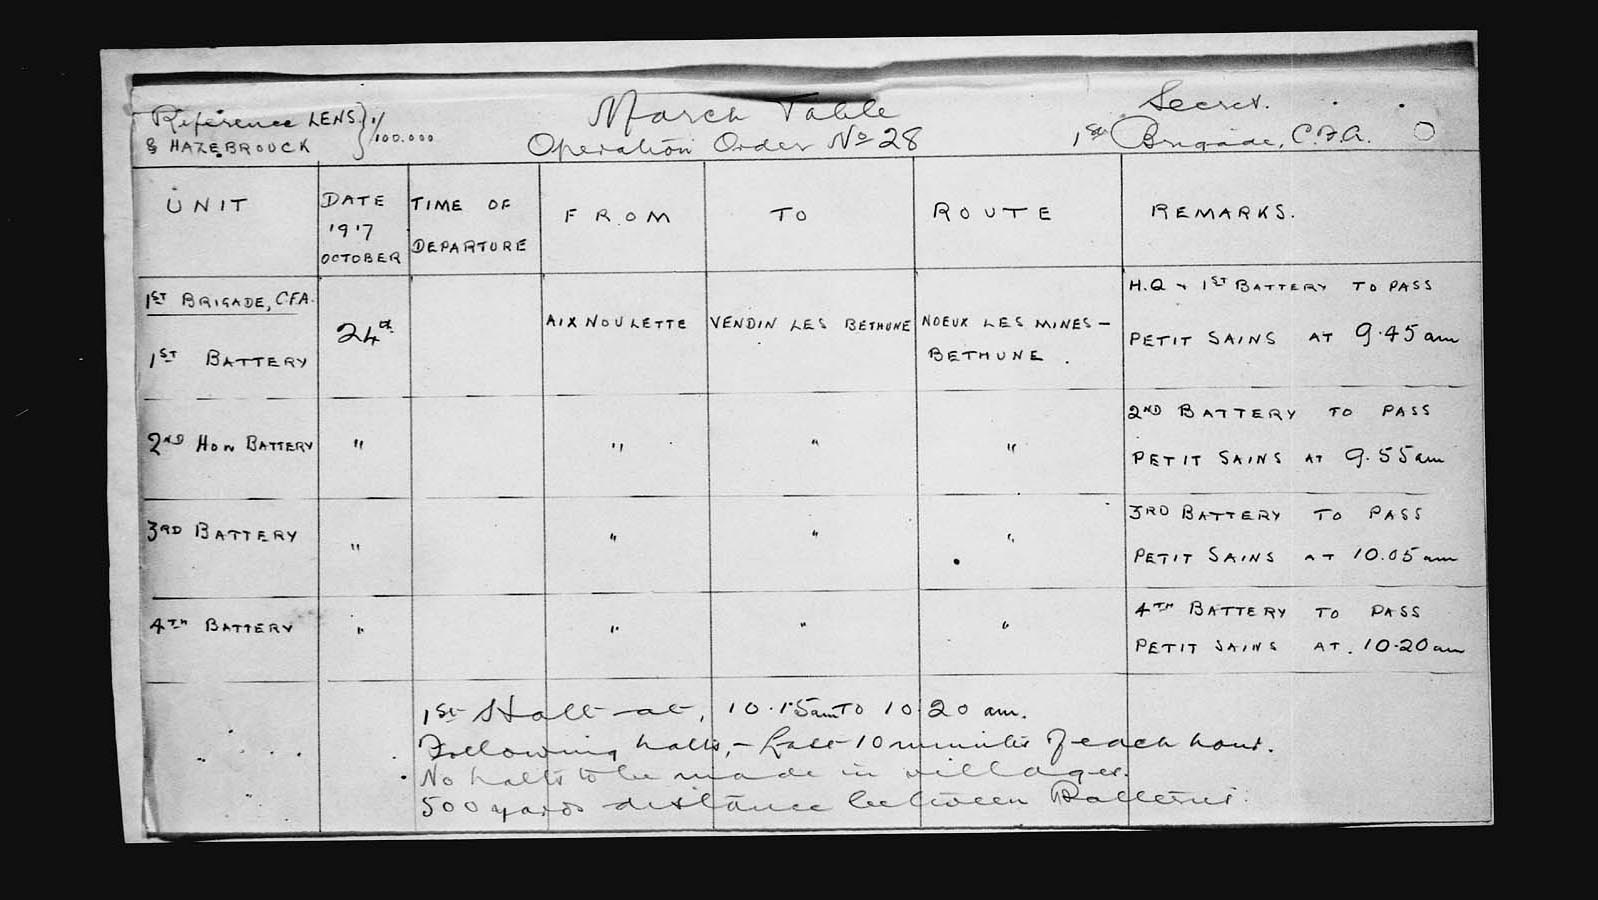 Reference LENS } 1/100.000
& HAZEBROUCK
March Table
Operation Order No 28
Secret.
1st Brigade, C.F.A.
UNIT
DATE
1917
OCTOBER
TIME OF
DEPARTURE
FROM
TO
ROUTE
REMARKS.
1ST BRIGADE, C.F.A.
1ST BATTERY
24th
AIX NOULETTE
VENDIN LES BETHUNE
NOEUX LES MINES –
BETHUNE .
H.Q & 1ST BATTERY TO PASS
PETIT SAINS AT 9.45 am
2ND How BATTERY
"
"
"
"
2ND BATTERY TO PASS
PETIT SAINS AT 9.55 am
3RD BATTERY
"
"
"
"
3RD BATTERY TO PASS
PETIT SAINS AT 10.05 am
4TH BATTERY
"
"
"
"
4TH BATTERY TO PASS
PETIT SAINS AT. 10.20 am
1st Halt at, 10.15 am TO 10 20 am.
Following halts, – Last 10 minutes of each hour.
No halts to be made in villages.
500 yards distance between Batteries.